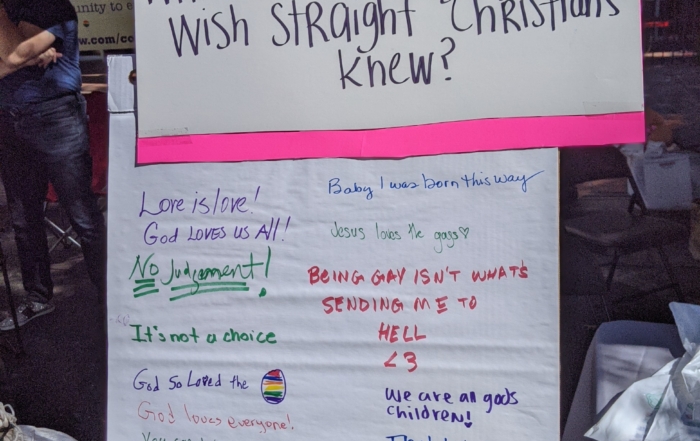 unity to e
w.com/cc
WISH STRAIGHT CHRISTIANS
KNEW?
Love is love!
GOD LOVES US All!
No Judgement!
It's not a choice
God So Loved the
God loves everyone!
Baby I was born this way
Jesus loves the gays
BEING GAY ISN'T WHAT'S
SENDING ME TO
HELL
<3
We are all gods
children!